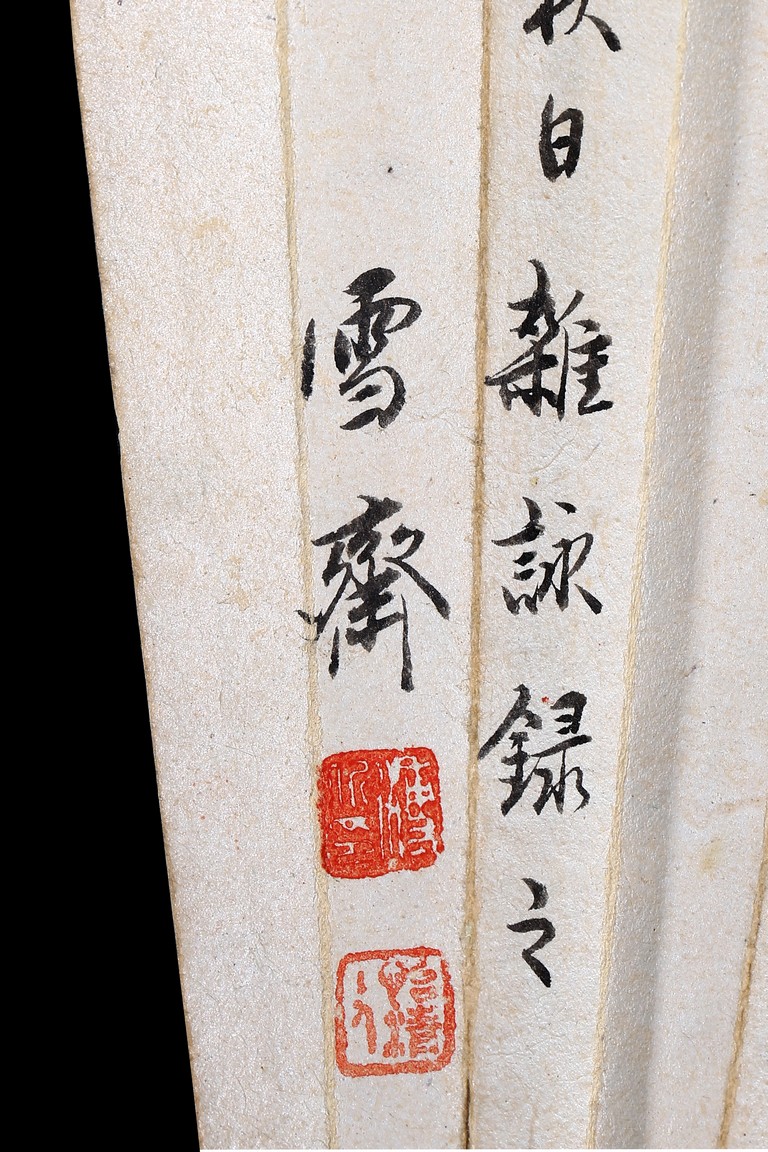 秋日雜詠錄之
雪齋